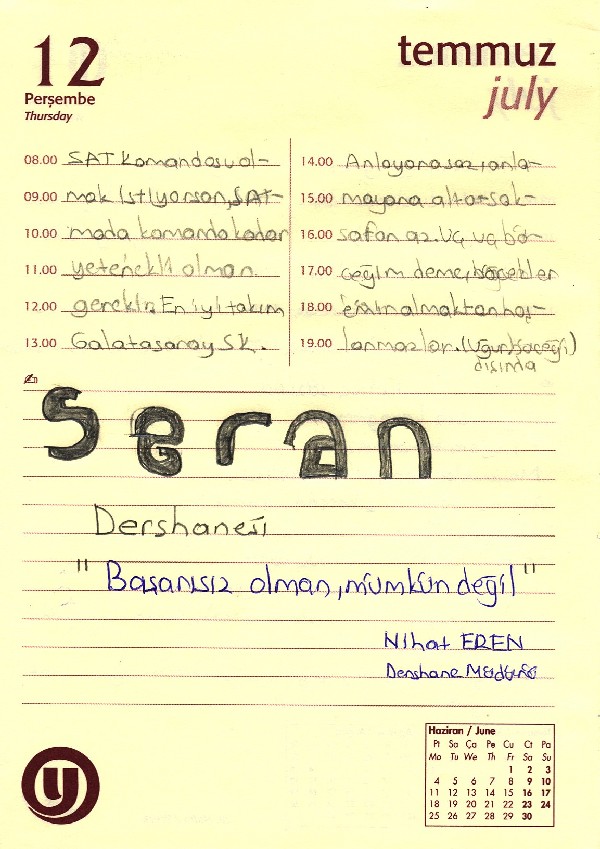 12
Perşembe
Thursday
temmuz
july
08.00 SAT komandosu ol-
09.00 mak istiyorsan, SAT-
10.00 mada komando kadar
11.00 yetenekli olman
12.00 gerekir. En iyi takım
13.00 Galatasaray SK.
14.00 Anlayana saz, anla-
15.00 mayana
16.00 az. Uç uç bö-
17.00 ceğim deme, böcekler
18.00 emir almaktan hoş-
19.00 lanmazlar. (Uğurböceği)
dışında
Seran
Dershanesi
"Başarısız olman, mümkün değil"
Nihat EREN
Dershane Müdürü
Haziran / June
Pt Sa Ça Pe Cu Ct Pa
Mo Tu We Th Fr Sa Su
1 2 3
4 5 6 7 8 9 10
11 12 13 14 15 16 17
18 19 20 21 22 23 24
25 26 27 28 29 30
y